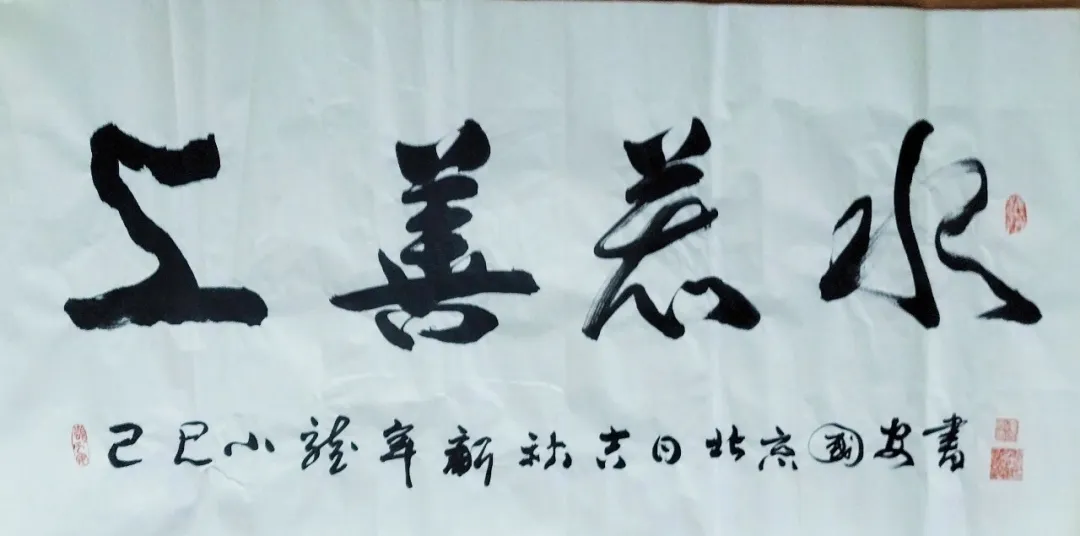 上善若水
己巳小龍年新秋吉日北京國安書